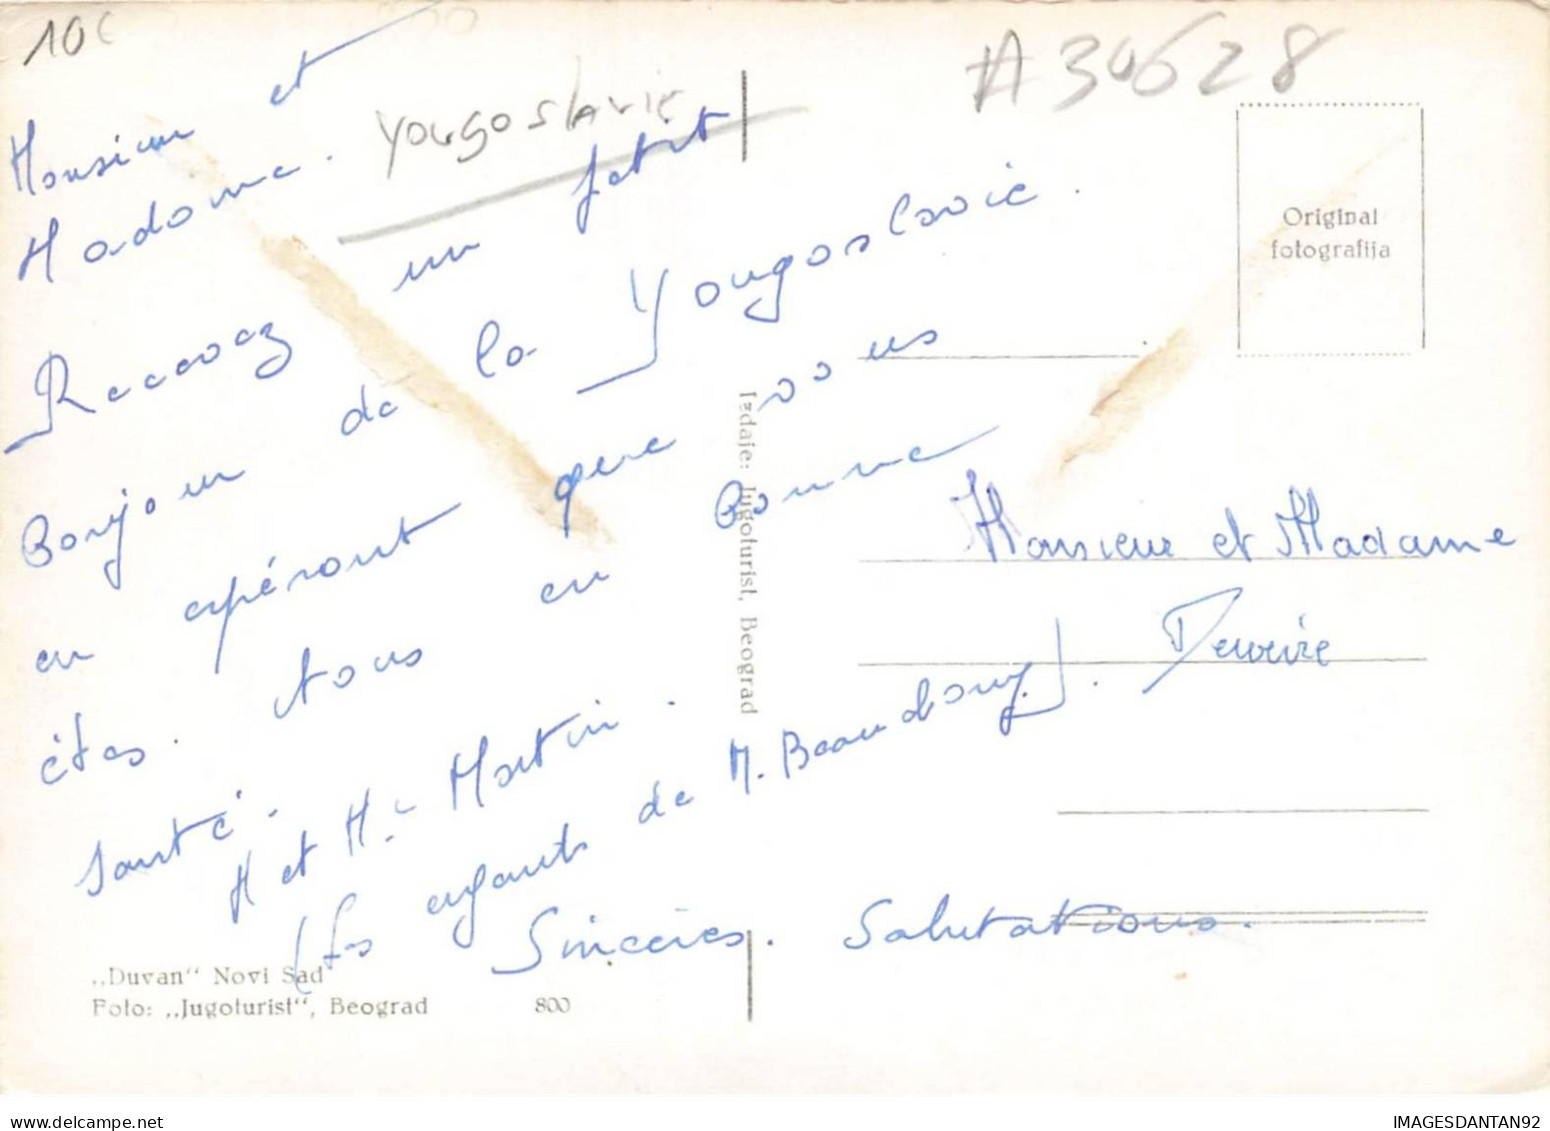 10c
A30628
Yougoslavie
Monsieur et
Madame.
Recevez un petit
Bonjour de la Yougoslavie.
en espérant que vous
êtes tous en bonne
santé.
M et Me Martin.
(les enfants de M. Beaudouy).
Sincères. Salutations.
Original
fotografija
Izdaje: Jugoturist, Beograd
Monsieur et Madame
„Duvan“ Novi Sad
Foto: „Jugoturist“, Beograd 800
IMAGESDANTAN92